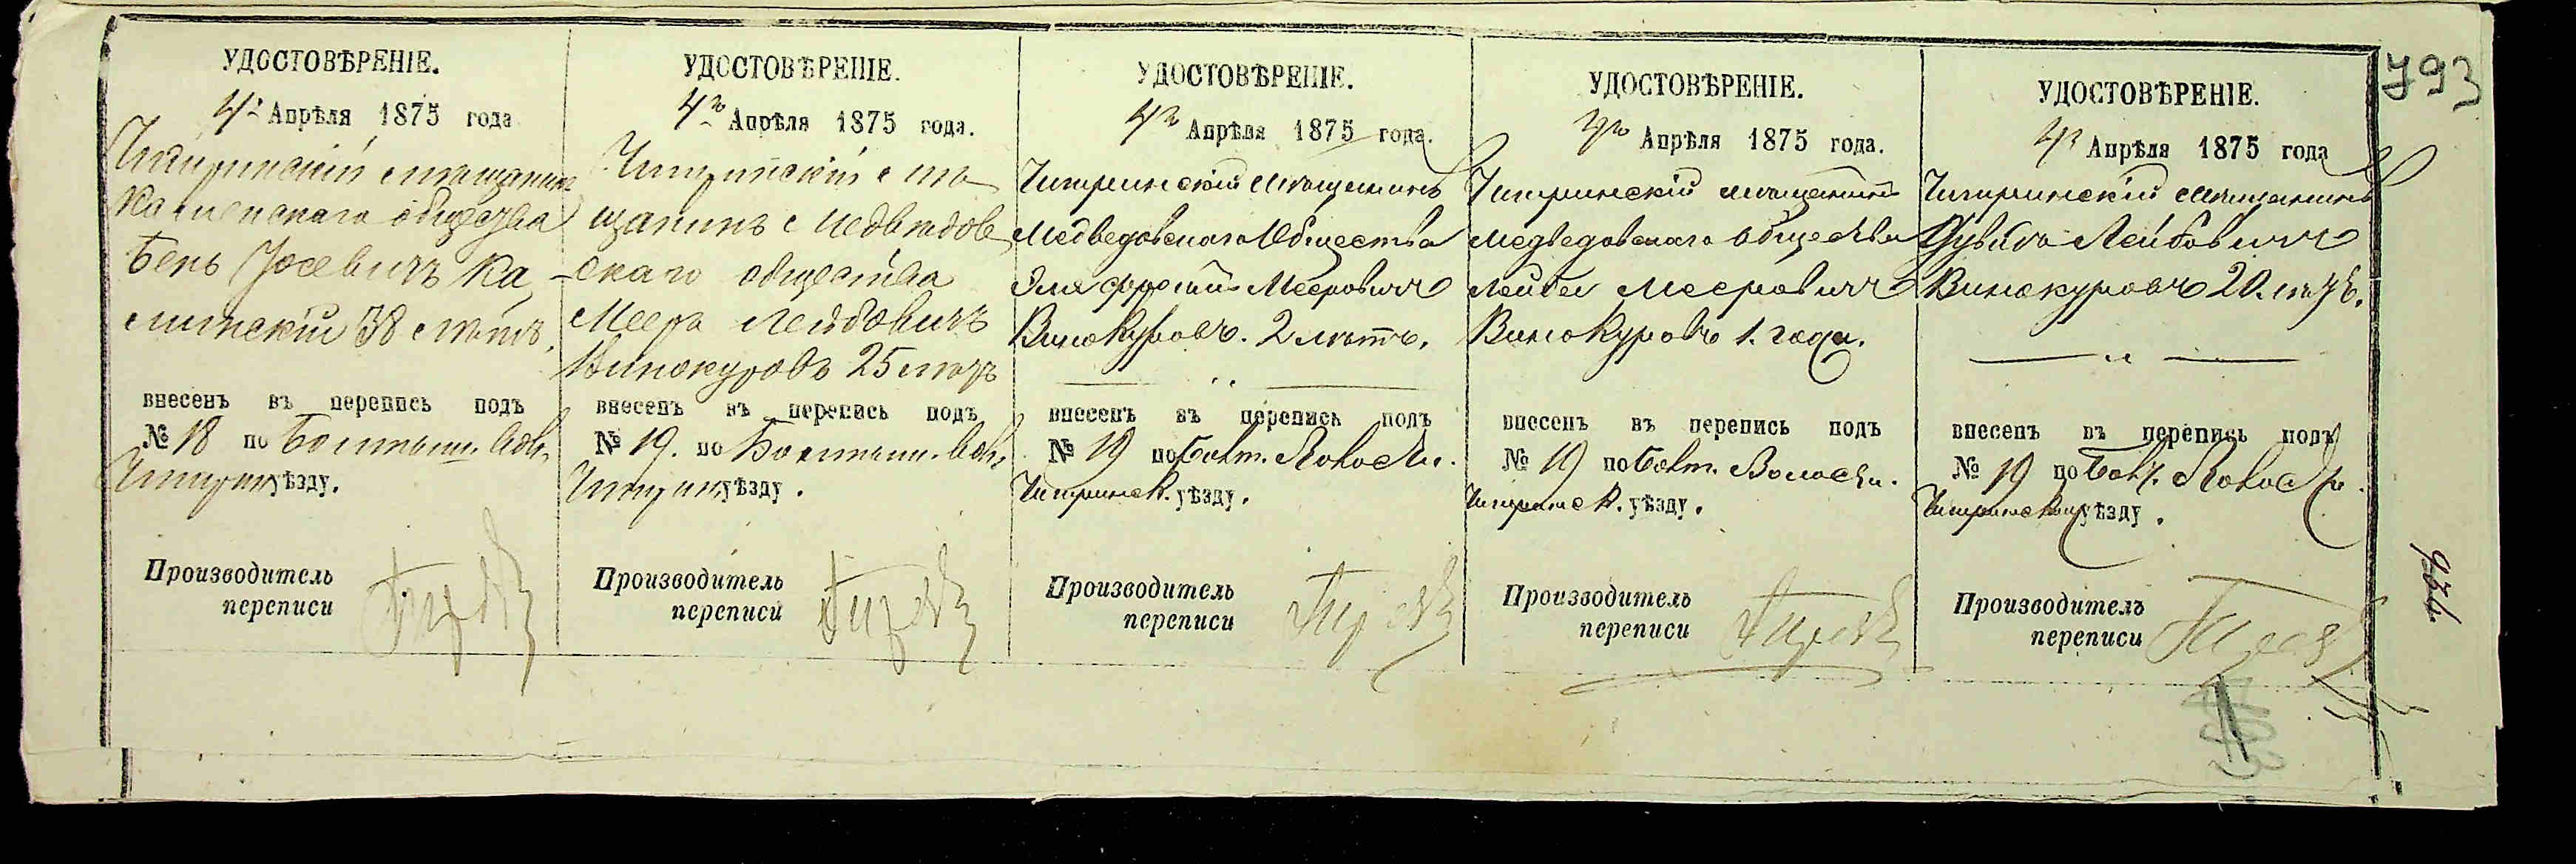 УДОСТОВѢРЕНІЕ.
4го Апрѣля 1875 года
Чигиринскій мѣщанинъ
Каменскаго общества
Бень Іосевичъ Ка-
минскій 38 лѣтъ,
внесенъ въ перепись подъ
№ 18 по Болтыш. вол.
Чигирин. уѣзду.
Производитель
переписи
УДОСТОВѢРЕНІЕ.
4го Апрѣля 1875 года.
Чигиринскій мѣ-
щанинъ Медвѣдов-
скаго общества
Мееръ Лейбовичъ
Винокуровъ 25 лѣтъ
внесенъ въ перепись подъ
№ 19. по Болтыш. вол.
Чигирин. уѣзду.
Производитель
переписи
УДОСТОВѢРЕНІЕ.
4го Апрѣля 1875 года.
Чигиринскій мѣщанинъ
Медведовскаго Общества
Мееровичъ
Винокуровъ. 2 лѣтъ,
внесенъ въ перепись подъ
№ 19 по Болт. Волости.
Чигиринск. уѣзду.
Производитель
переписи
УДОСТОВѢРЕНІЕ.
4го Апрѣля 1875 года.
Чигиринскій мѣщанинъ
Медведовскаго общества
Лейба Мееровичъ
Винокуровъ 1. года.
внесенъ въ перепись подъ
№ 19 по Болт. Волости.
Чигиринск. уѣзду.
Производитель
переписи
УДОСТОВѢРЕНІЕ.
4го Апрѣля 1875 года
Чигиринскій мѣщанинъ
Лейбовичъ
Винокуровъ 20. лѣтъ.
внесенъ въ перепись подъ
№ 19 по Болт. Волости.
Чигиринском. уѣзду.
Производитель
переписи
793